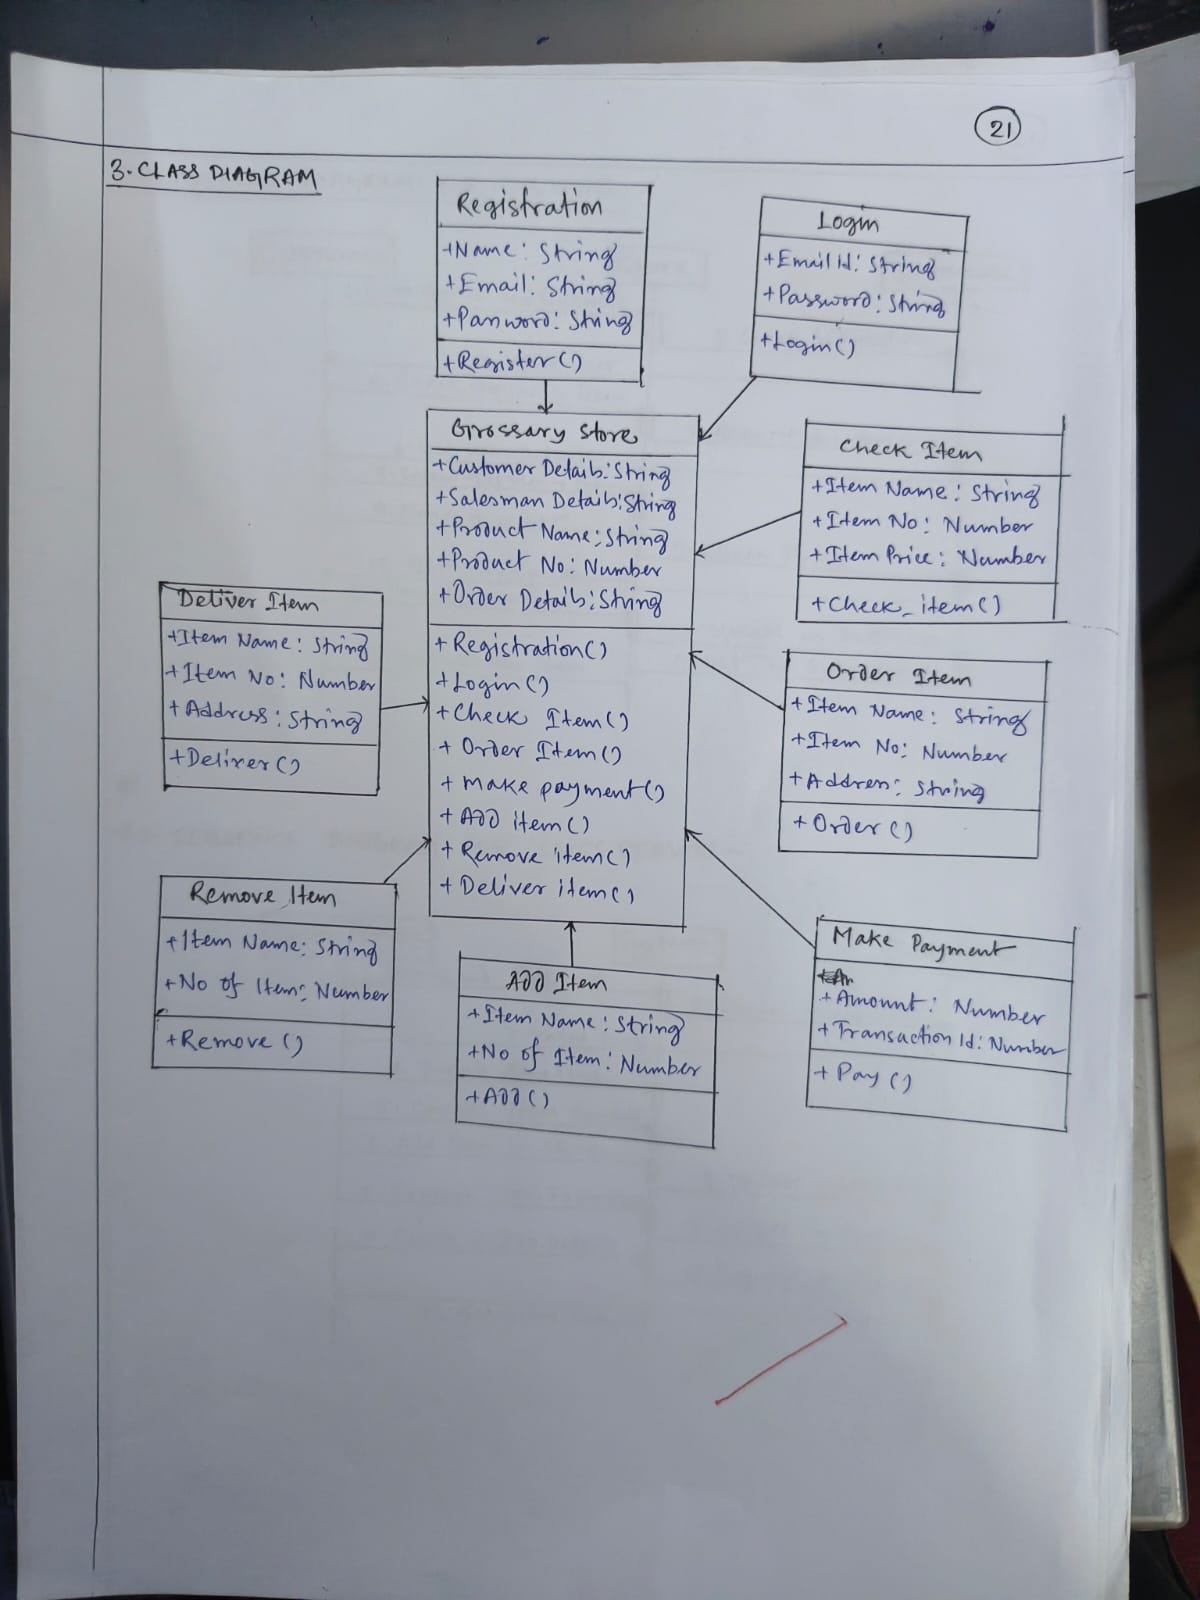 21
3. CLASS DIAGRAM
Registration
+Name: String
+Email: String
+Password: String
+Register()
Login
+Email Id: String
+Password: String
+Login()
Grossary Store
+Customer Details: String
+Salesman Details: String
+Product Name: String
+Product No: Number
+Order Details: String
+Registration()
+Login()
+Check Item()
+Order Item()
+Make payment()
+Add item()
+Remove item()
+Deliver item()
Check Item
+Item Name: String
+Item No: Number
+Item Price: Number
+Check_item()
Deliver Item
+Item Name: String
+Item No: Number
+Address: String
+Deliver()
Order Item
+Item Name: String
+Item No: Number
+Address: String
+Order()
Remove Item
+Item Name: String
+No of Item: Number
+Remove()
Add Item
+Item Name: String
+No of Item: Number
+Add()
Make Payment
+Amount: Number
+Transaction Id: Number
+Pay()